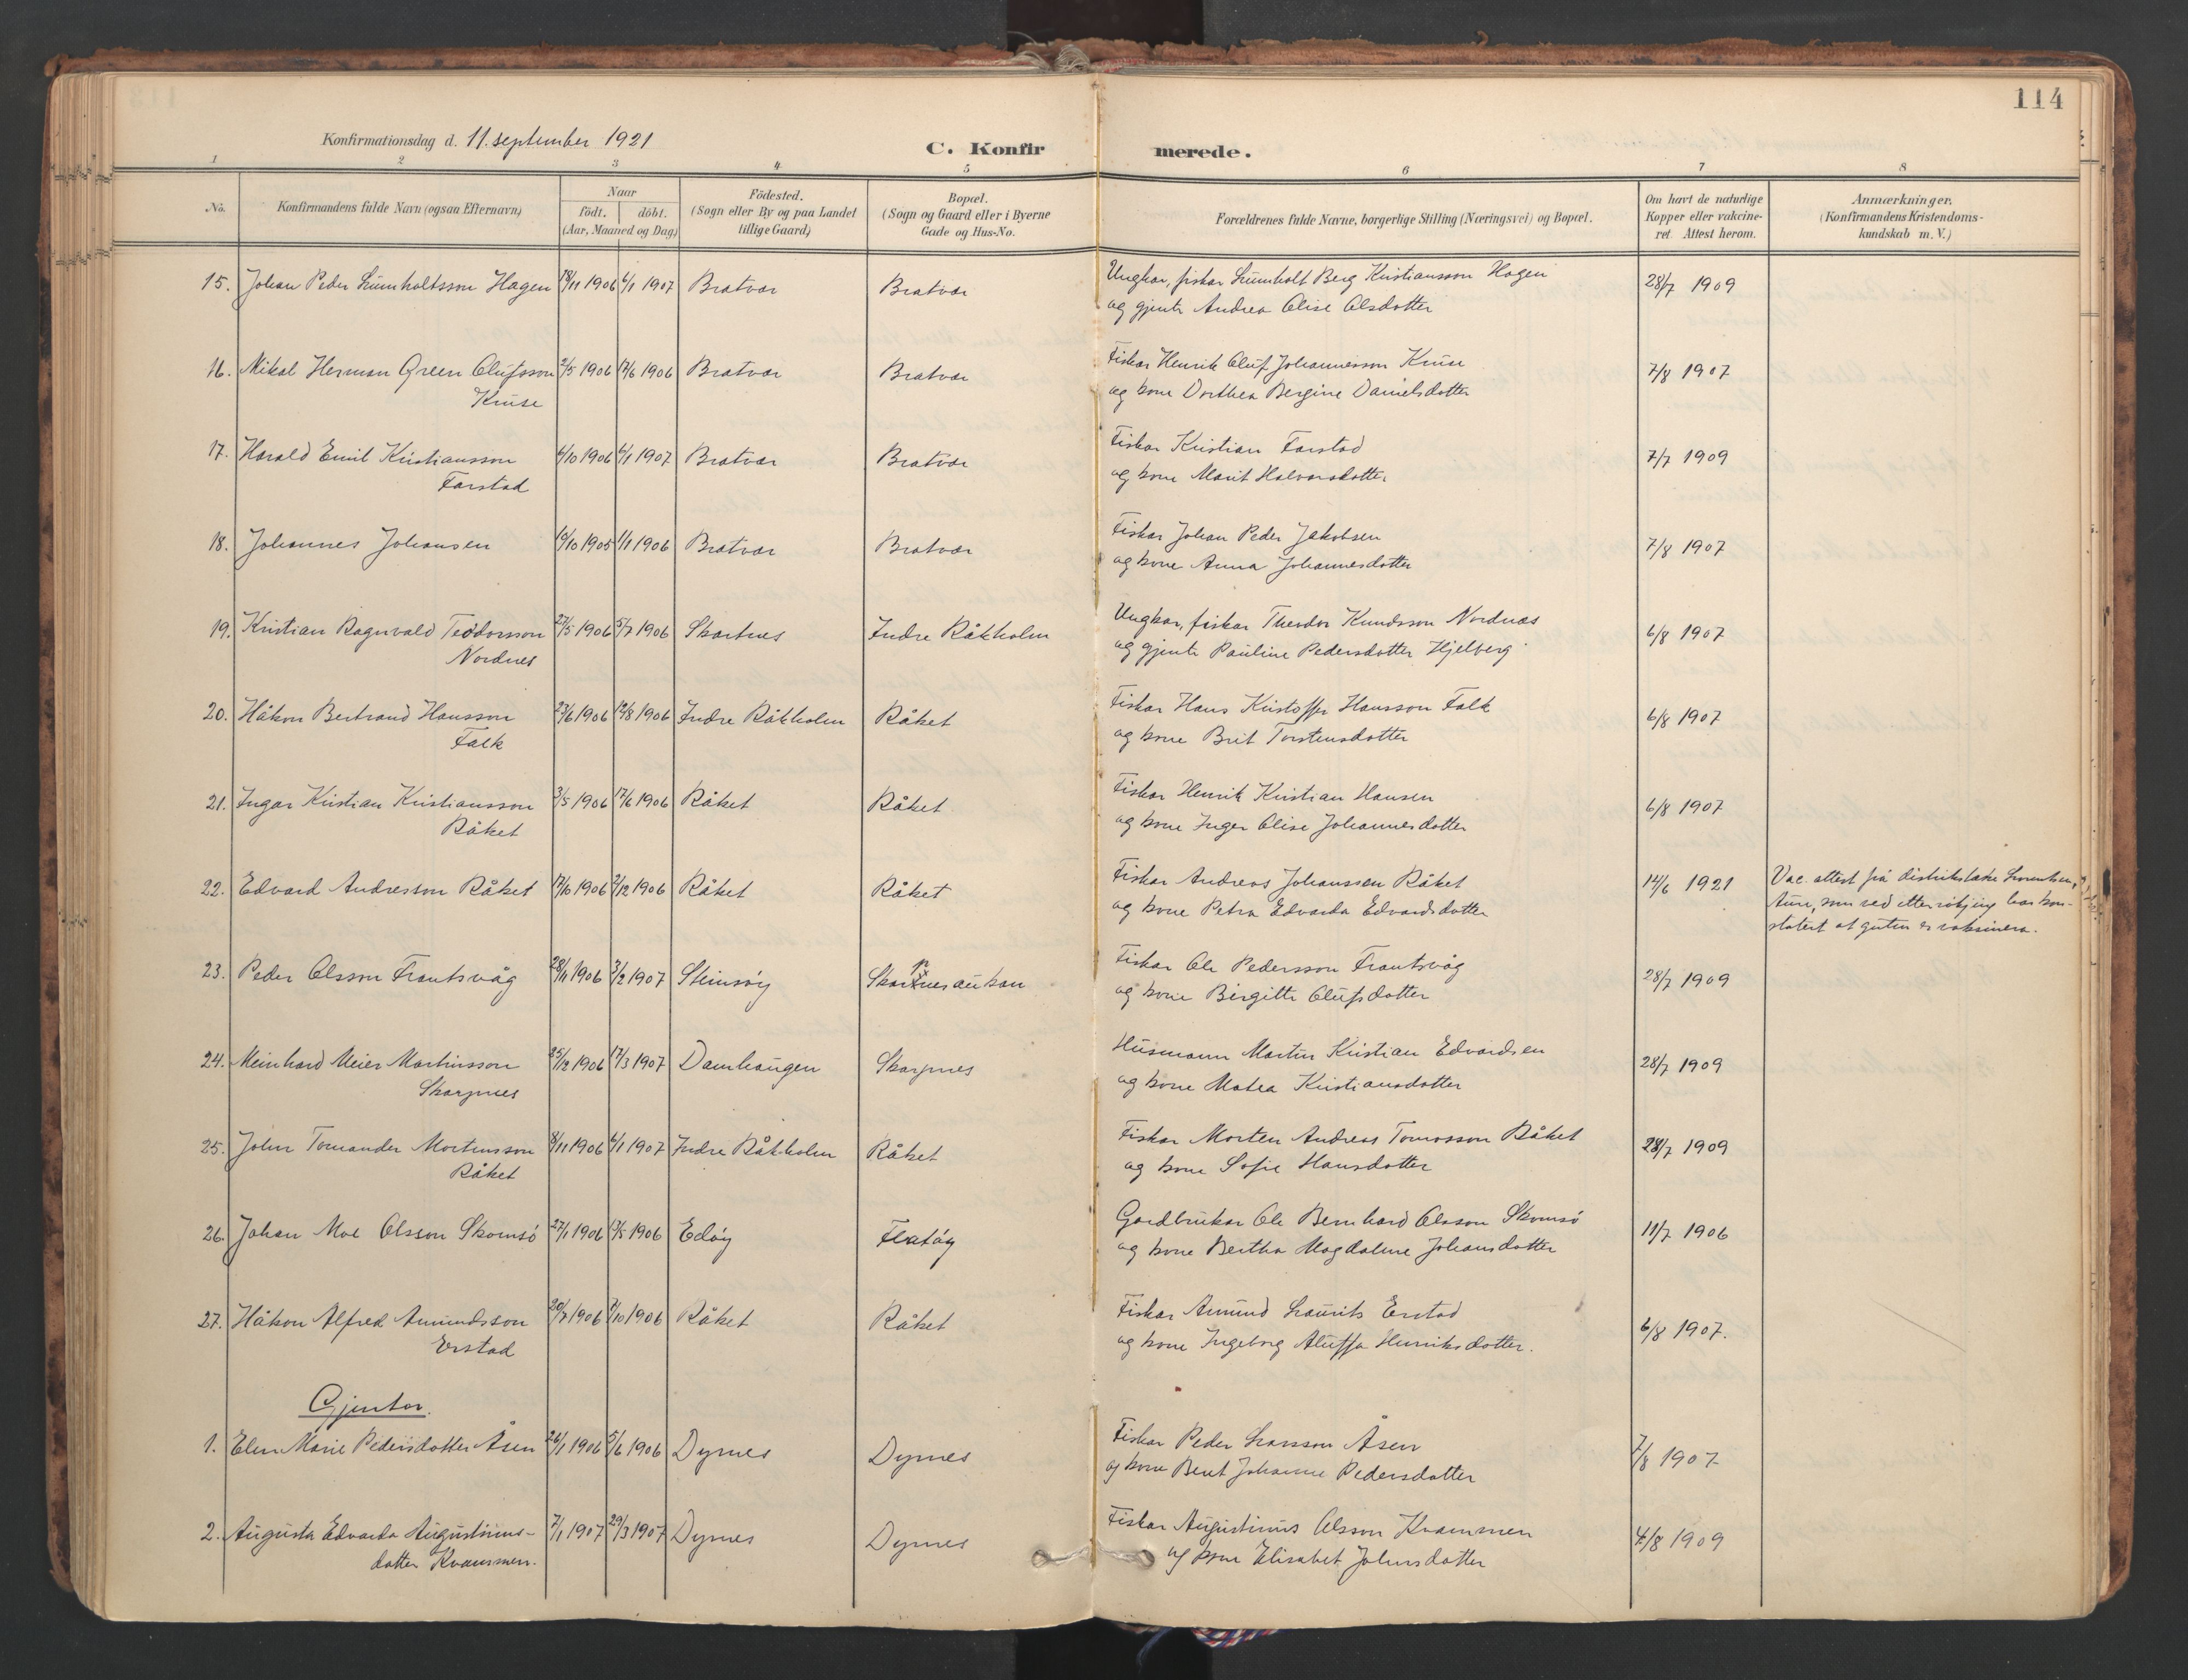 114
Konfirmationsdag d. 11. september 1921
C. Konfirmerede.
1 2 3 4 5 6 7 8
No.
Konfirmandens fulde Navn (ogsaa Efternavn)
Naar
födt. döbt.
(Aar, Maaned og Dag)
Födested.
(Sogn eller By og paa Landet
tillige Gaard)
Bopæl.
(Sogn og Gaard eller i Byerne
Gade og Hus-No.
Forældrenes fulde Navne, borgerlige Stilling (Næringsvei) og Bopæl.
Om havt de naturlige
Kopper eller vakcine-
ret. Attest herom.
Anmærkninger.
(Konfirmandens Kristendoms-
kundskab m. V.)
15. Johan Peder Lumholtsson Hagen 18/11 1906 6/1 1907 Bratvær Bratvær Ungkar, fiskar Lumholt Berg Kristiansson Hagen 28/7 1909
og gjente Andrea Elise Olsdotter
16. Mikal Herman Green Olufsson 2/5 1906 17/6 1906 Bratvær Bratvær Fiskar Henrik Oluf Johannesson Kruse 7/8 1907
Kruse og kone Dorthea Bergine Danielsdotter
17. Harald Emil Kristiansson 6/10 1906 6/1 1907 Bratvær Bratvær Fiskar Kristian Farstad 7/7 1909
Farstad og kone Marit Halvorsdotter
18. Johannes Johansen 10/10 1905 1/1 1906 Bratvær Bratvær Fiskar Johan Peder Jakobsen 7/8 1907
og kone Anna Johannesdotter
19. Kristian Ragnvald Teodorsson 27/5 1906 5/7 1906 Skarpnes Indre Råkholm Ungkar, fiskar Theodor Knudsson Nordnæs 6/8 1907
Nordnes og gjente Pauline Pedersdotter Hjelberg
20. Håkon Bertrand Hansson 23/6 1906 12/8 1906 Indre Råkholm Råket Fiskar Hans Kristoffer Hansson Falk 6/8 1907
Falk og kone Brit Torstensdotter
21. Ingar Kristian Kristiansson 3/5 1906 17/6 1906 Råket Råket Fiskar Henrik Kristian Hansen 6/8 1907
Råket og kone Inger Elise Johannesdotter
22. Edvard Andresson Råket 17/10 1906 2/12 1906 Råket Råket Fiskar Andreas Johanssen Råket 14/6 1921 Vac. attest frå distriktslæke
og kone Petra Edvarda Edvardsdotter Aure, som ved etter har kon-
statert at guten er vaksinera.
23. Peder Olsson Frantsvåg 28/11 1906 3/2 1907 Steinsöy Skarpnesaukan Fiskar Ole Pedersson Frantsvåg 28/7 1909
og kone Birgitte Olufsdotter
24. Meinhard Meier Martinsson 25/12 1906 17/3 1907 Damhaugen Skarpnes Husmann Martin Kristian Edvardsen 28/7 1909
Skarpnes og kone Matea Kristiansdotter
25. John Tomander Mortensson 8/11 1906 6/1 1907 Indre Råkholm Råket Fiskar Morten Andreas Tomasson Råket 28/7 1909
Råket og kone Sofie Hansdotter
26. Johan Moe Olsson Skomsö 27/1 1906 13/5 1906 Edöy Flatöy Gardbrukar Ole Bernhard Olsson Skomsö 11/7 1906
og kone Bertha Magdalene Johansdotter
27. Håkon Alfred Amundsson 20/7 1906 7/10 1906 Råket Råket Fiskar Amund Laurits Erstad 6/8 1907.
Erstad og kone Ingeborg Aluffa Henriksdotter.
Gjentor.
1. Elen Marie Pedersdotter Åsen 26/1 1906 5/6 1906 Dyrnes Dyrnes Fiskar Peder Larsson Åsen 7/8 1907
og kone Berit Johanne Pedersdotter
2. Augusta Edvarda Augustinus- 7/1 1907 29/3 1907 Dyrnes Dyrnes Fiskar Augustinus Olsson Kvammen 4/8 1909
dotter Kvammen. og kone Elisabet Johnsdotter